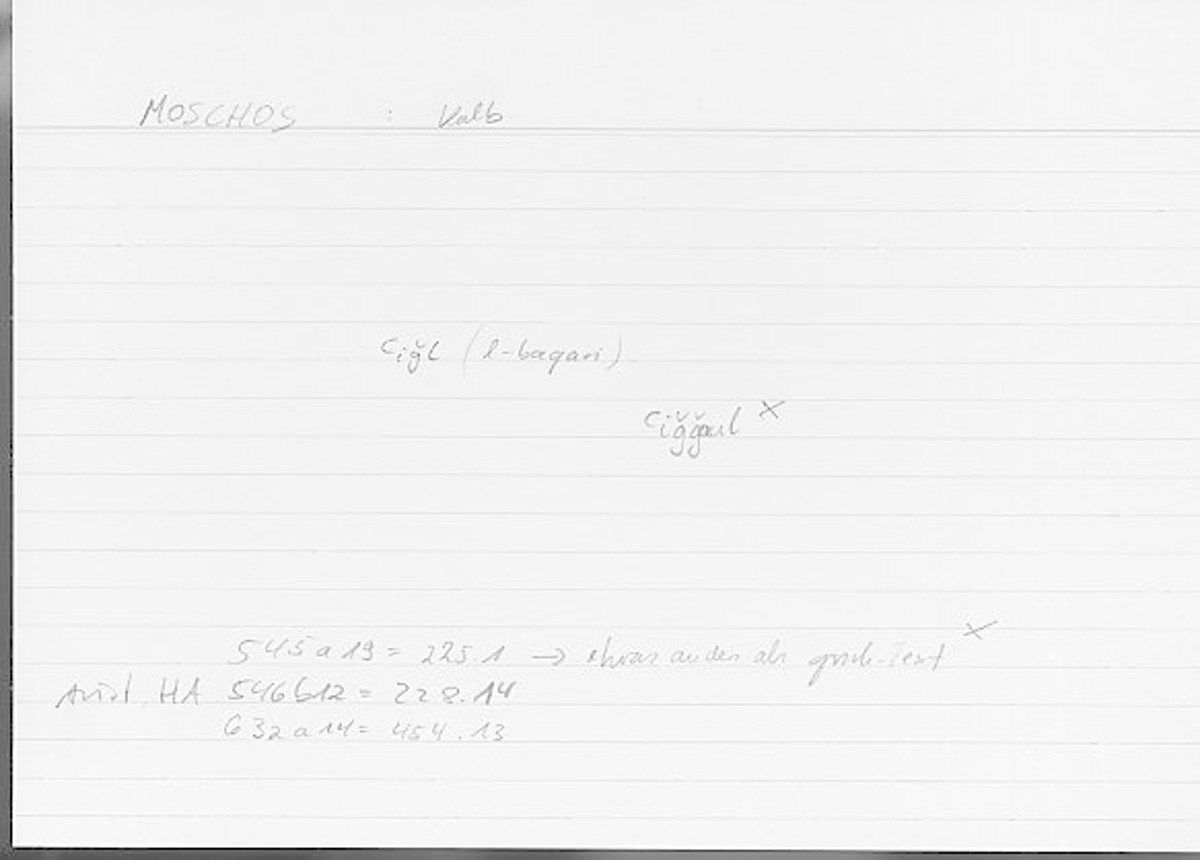 MOSCHOS : Kalb
ʿiǧl (l-baqari)
ʿiǧǧaul ×
545a19 = 225.1 → etwas anders als griech. Text ×
Arist. HA 546b12 = 228.14
632a14 = 454.13